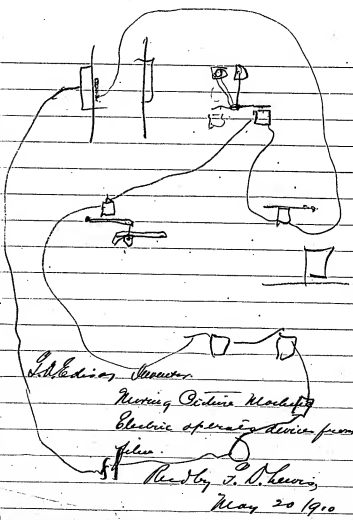 T. A. Edison Inventor
Moving Picture Machine
Electric operated device from
film
Recd by T. D. Lewis
May 20 1910